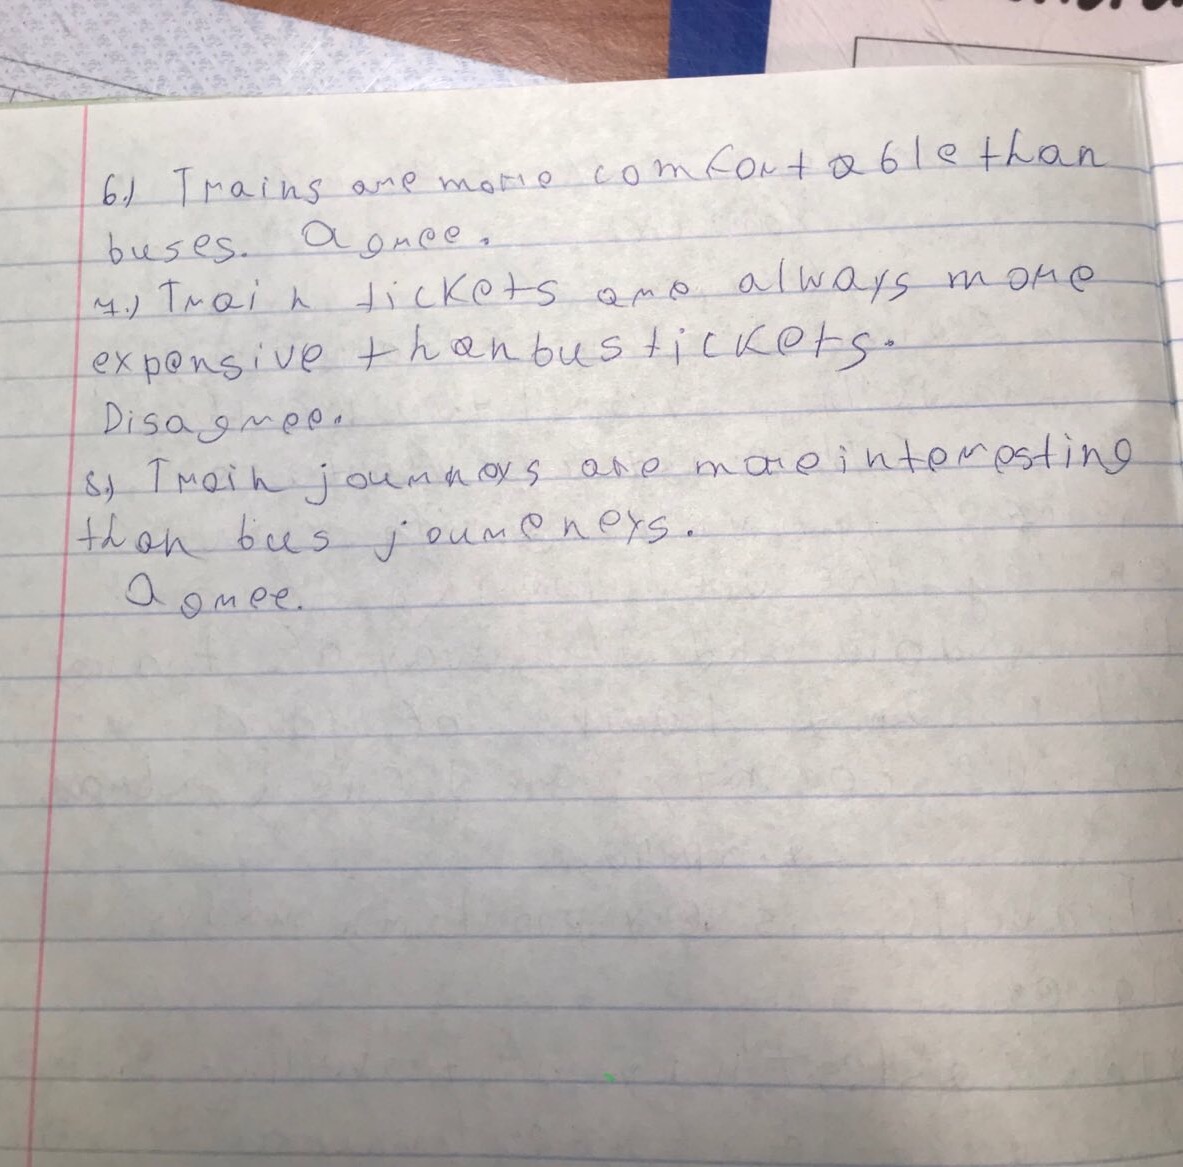 6.) Trains are more comfortable than
buses. Agree.
7.) Train tickets are always more
expensive than bus tickets.
Disagree.
8.) Train journeys are more interesting
than bus joureneys.
Agree.